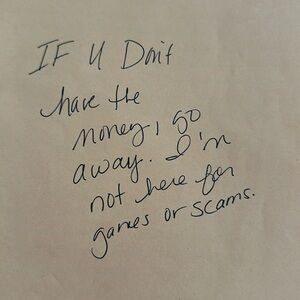 IF U Don't
have the
money, go
away. I'm
not here for
games or scams.